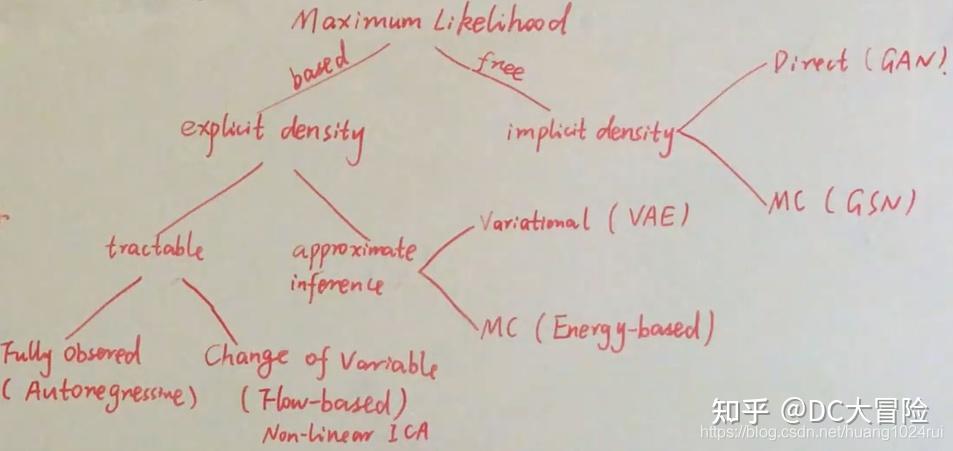 Maximum Likelihood
based
free
Direct (GAN)
explicit density
implicit density
MC (GSN)
Variational (VAE)
tractable
approximate
inference
MC (Energy-based)
Fully Obsered
(Autoregressive)
Change of Variable
(Flow-based)
Non-linear ICA
知乎 @DC大冒险
https://blog.csdn.net/huang1024rui